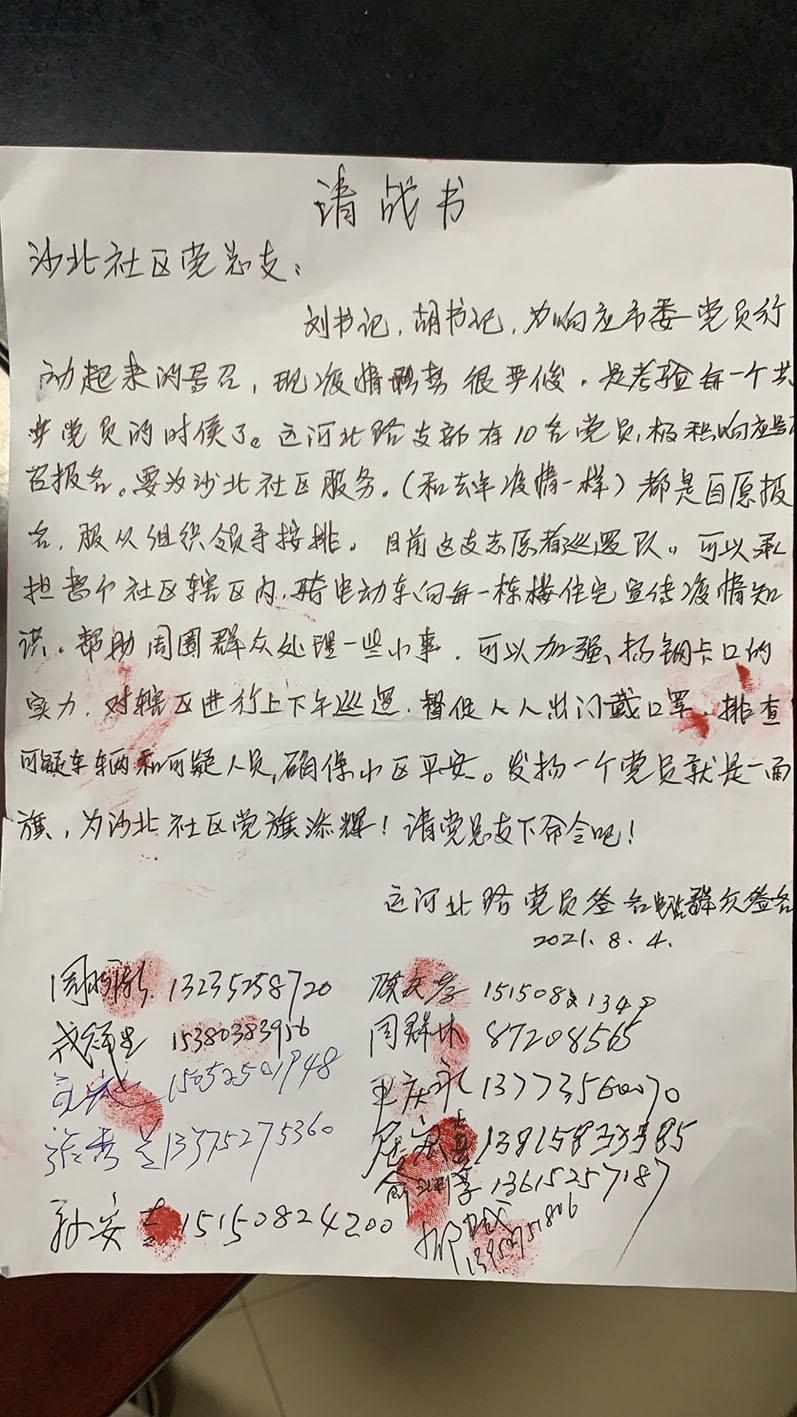 请战书
沙北社区党总支:
刘书记,胡书记,为响应市委党员行
动起来的号召,现疫情形势很严俊。是考验每一个共
产党员的时侯了。运河北路支部有10名党员,极积响应号
召报名。要为沙北社区服务。(和去年疫情一样)都是自愿报
名,服从组织领导按排。目前这支志愿者巡逻队。可以承
担整个社区辖区内,骑电动车向每一栋楼住宅宣传疫情知
识。帮助周围群众处理一些小事,可以加强、扬钢卡口的
实力,对辖区进行上下午巡逻,督促人人出门戴口罩、排查
可疑车辆和可疑人员,确保小区平安。发扬一个党员就是一面
旗,为沙北社区党旗添辉!请党总支下命令吧!
运河北路党员签名 群众签名
2021.8.4.
13235258720
15380383956 周群 87208565
15052501948 王庆 13773560070
张秀兰 13375275360 13815833385
13615257187
孙安 15150824200